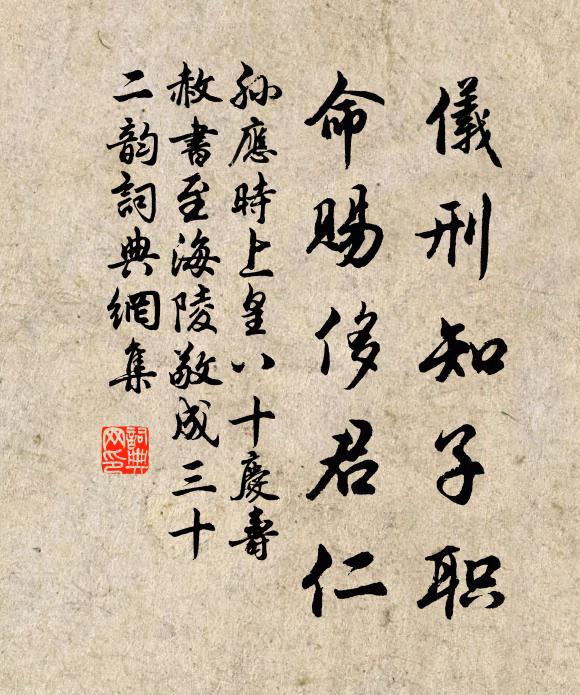 儀刑知子职
命賜侈君仁
孙應時上皇八十慶壽
赦書至海陵敬成三十
二韵詞典網集
詞典
网印